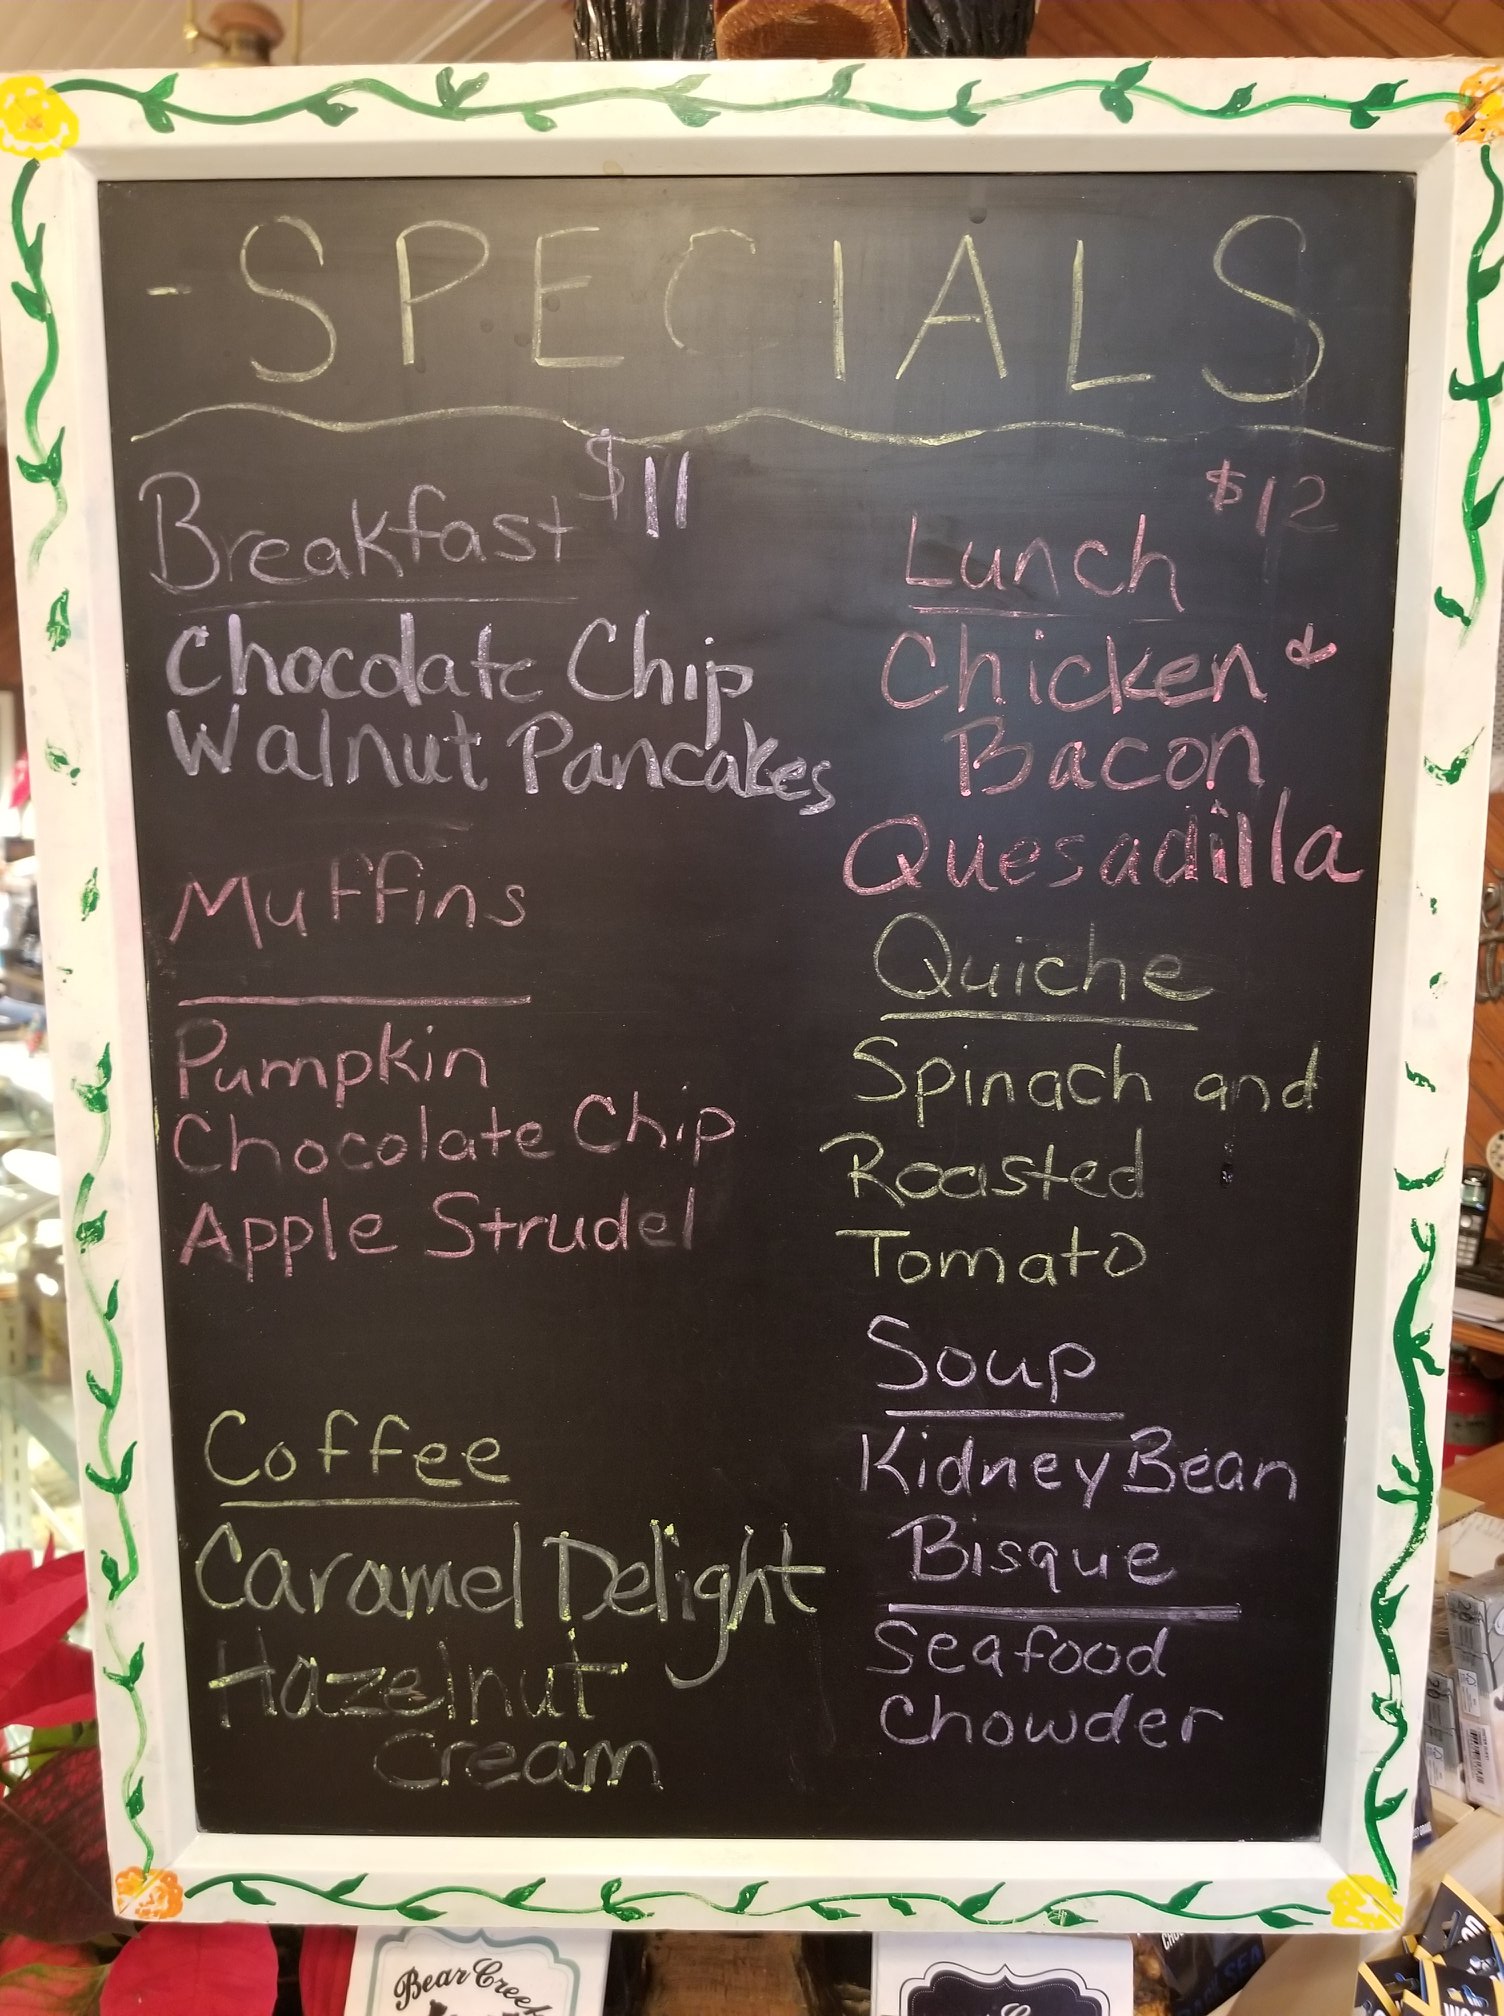 -SPECIALS
Breakfast $11
Chocolate Chip
Walnut Pancakes
Muffins
Pumpkin
Chocolate Chip
Apple Strudel
Coffee
Caramel Delight
Hazelnut
Cream
Lunch $12
Chicken &
Bacon
Quesadilla
Quiche
Spinach and
Roasted
Tomato
Soup
Kidney Bean
Bisque
Seafood
Chowder
Bear Creek